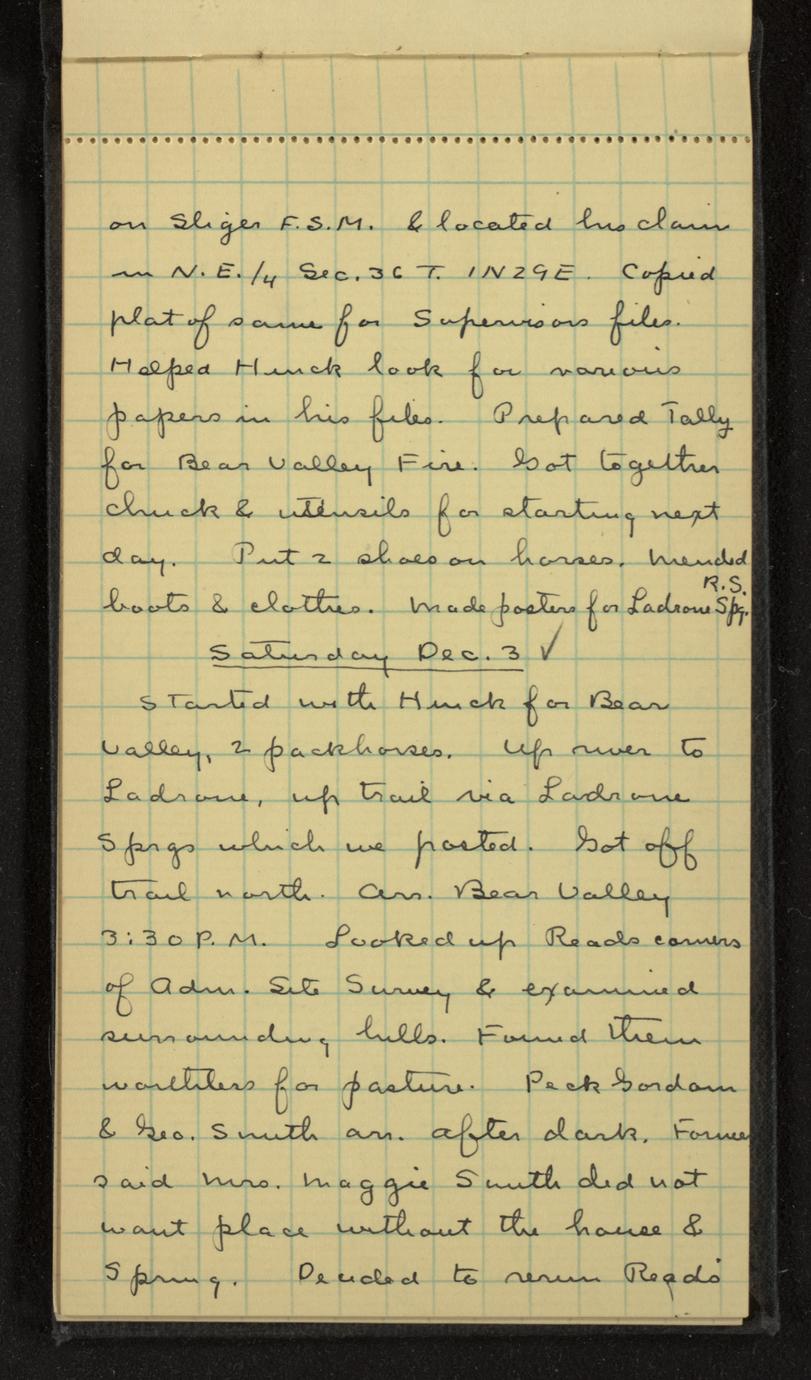 on Sliger F.S.M. & located his claim
in N.E./4 Sec. 36 T. 1N29E. Copied
plat of same for Supervisors files.
Helped Hinck look for various
papers in his files. Prepared Tally
for Bear Valley Fire. Got together
chuck & utensils for starting next
day. Put 2 shoes on horses. Mended
R.S.
boots & clothes. Made posters for Ladrone Spg.
Saturday Dec. 3 ✓
Started with Hinck for Bear
Valley, 2 packhorses. Up river to
Ladrone, up trail via Ladrone
Sprgs which we posted. Got off
trail north. Arr. Bear Valley
3:30 P.M. Looked up Reads corners
of Adm. Site Survey & examined
surrounding hills. Found them
worthless for pasture. Peck Gordom
& Geo. Smith arr. after dark. Former
said Mrs. Maggie Smith did not
want place without the house &
Spring. Decided to rerun Reads